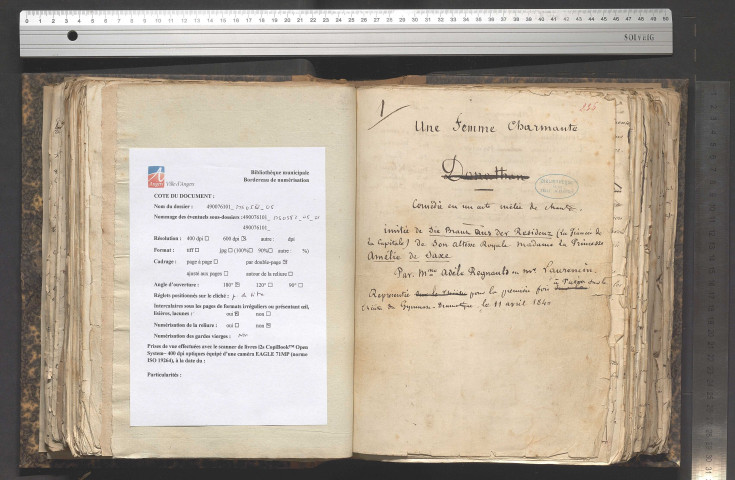 Bibliothèque municipale
Bordereau de numérisation
Angers Ville d'Angers
COTE DU DOCUMENT :
Nom du dossier : 490076101_
Nommage des éventuels sous-dossiers : 490076101_
490076101_
Résolution : 400 dpi ☐ 600 dpi ☒ autre : dpi
Format : tiff ☐ jpg ☐ (100% ☐ 90% ☐ autre : %)
Cadrage : page à page ☐ par double-page ☒
ajusté aux pages ☐ autour de la reliure ☐
Angle d'ouverture : 180° ☒ 120° ☐ 90° ☐
Réglets positionnés sur le cliché :
Intercalaires sous les pages de formats irréguliers ou présentant sérl,
lisières, lacunes : oui ☒ non ☐
Numérisation de la reliure : oui ☐ non ☒
Numérisation des gardes vierges :
Prises de vue effectuées avec le scanner de livres i2s CopiBook™ Open
System– 400 dpi optiques équipé d'une caméra EAGLE 71MP (norme
ISO 19264), à la date du :
Particularités :
1
Une Femme Charmante
Comédie en un acte mêlée de chants.
imitée de Die Braut aus der Residenz (la fiancée de
la Capitale) de Son altesse Royale madame la Princesse
Amélie de Saxe
Par. Mme Adèle Regnauld et Mr. Laurencin.
Représentée pour la première fois à Paris sur le
théâtre du Gymnase-Dramatique, le 11 avril 1840